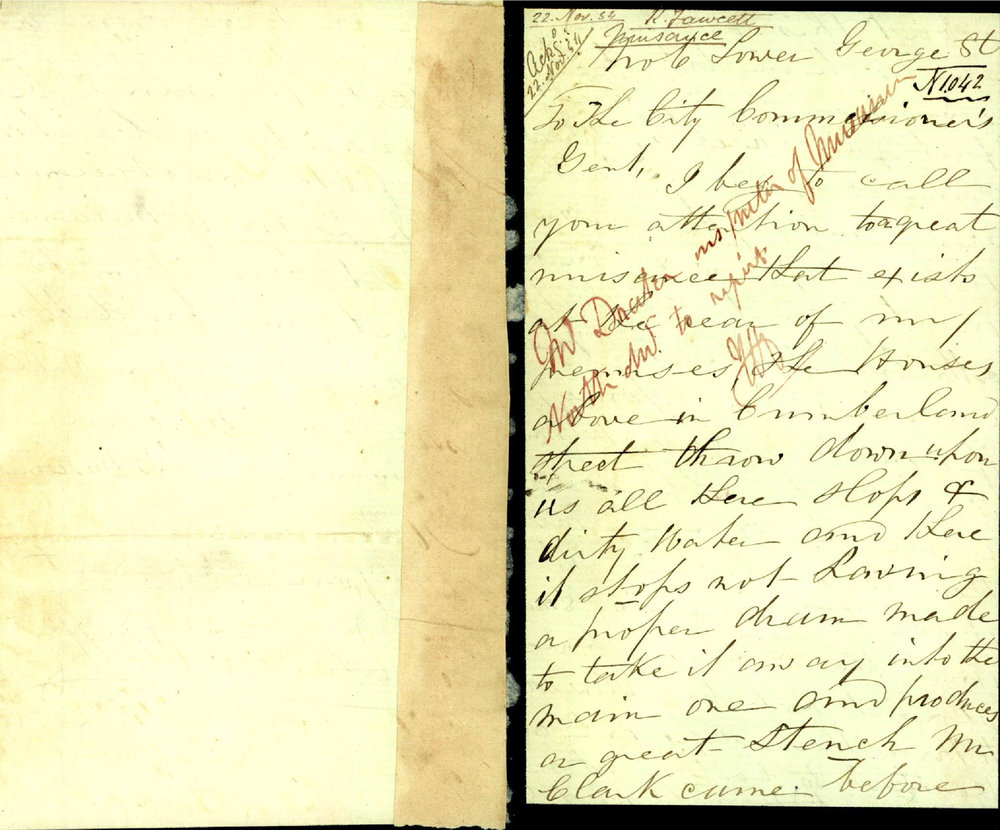 22. Nov. 54 R. Fawcett
Nuisance
Ackd
22. Nov. 54
No 6 Lower George St
N1042
To The City Commissioner's
Gent, I beg to call
your attention to a great
nuisance that exists
at the rear of my
premises, the Houses
above in Cumberland
street throw down upon
us all there slops &
dirty Water and there
it stops not having
a proper drain made
to take it away into the
main one and produces
a great stench Mr
Clark came before
Mr Dawson inspector of Nuisances
North div. to report